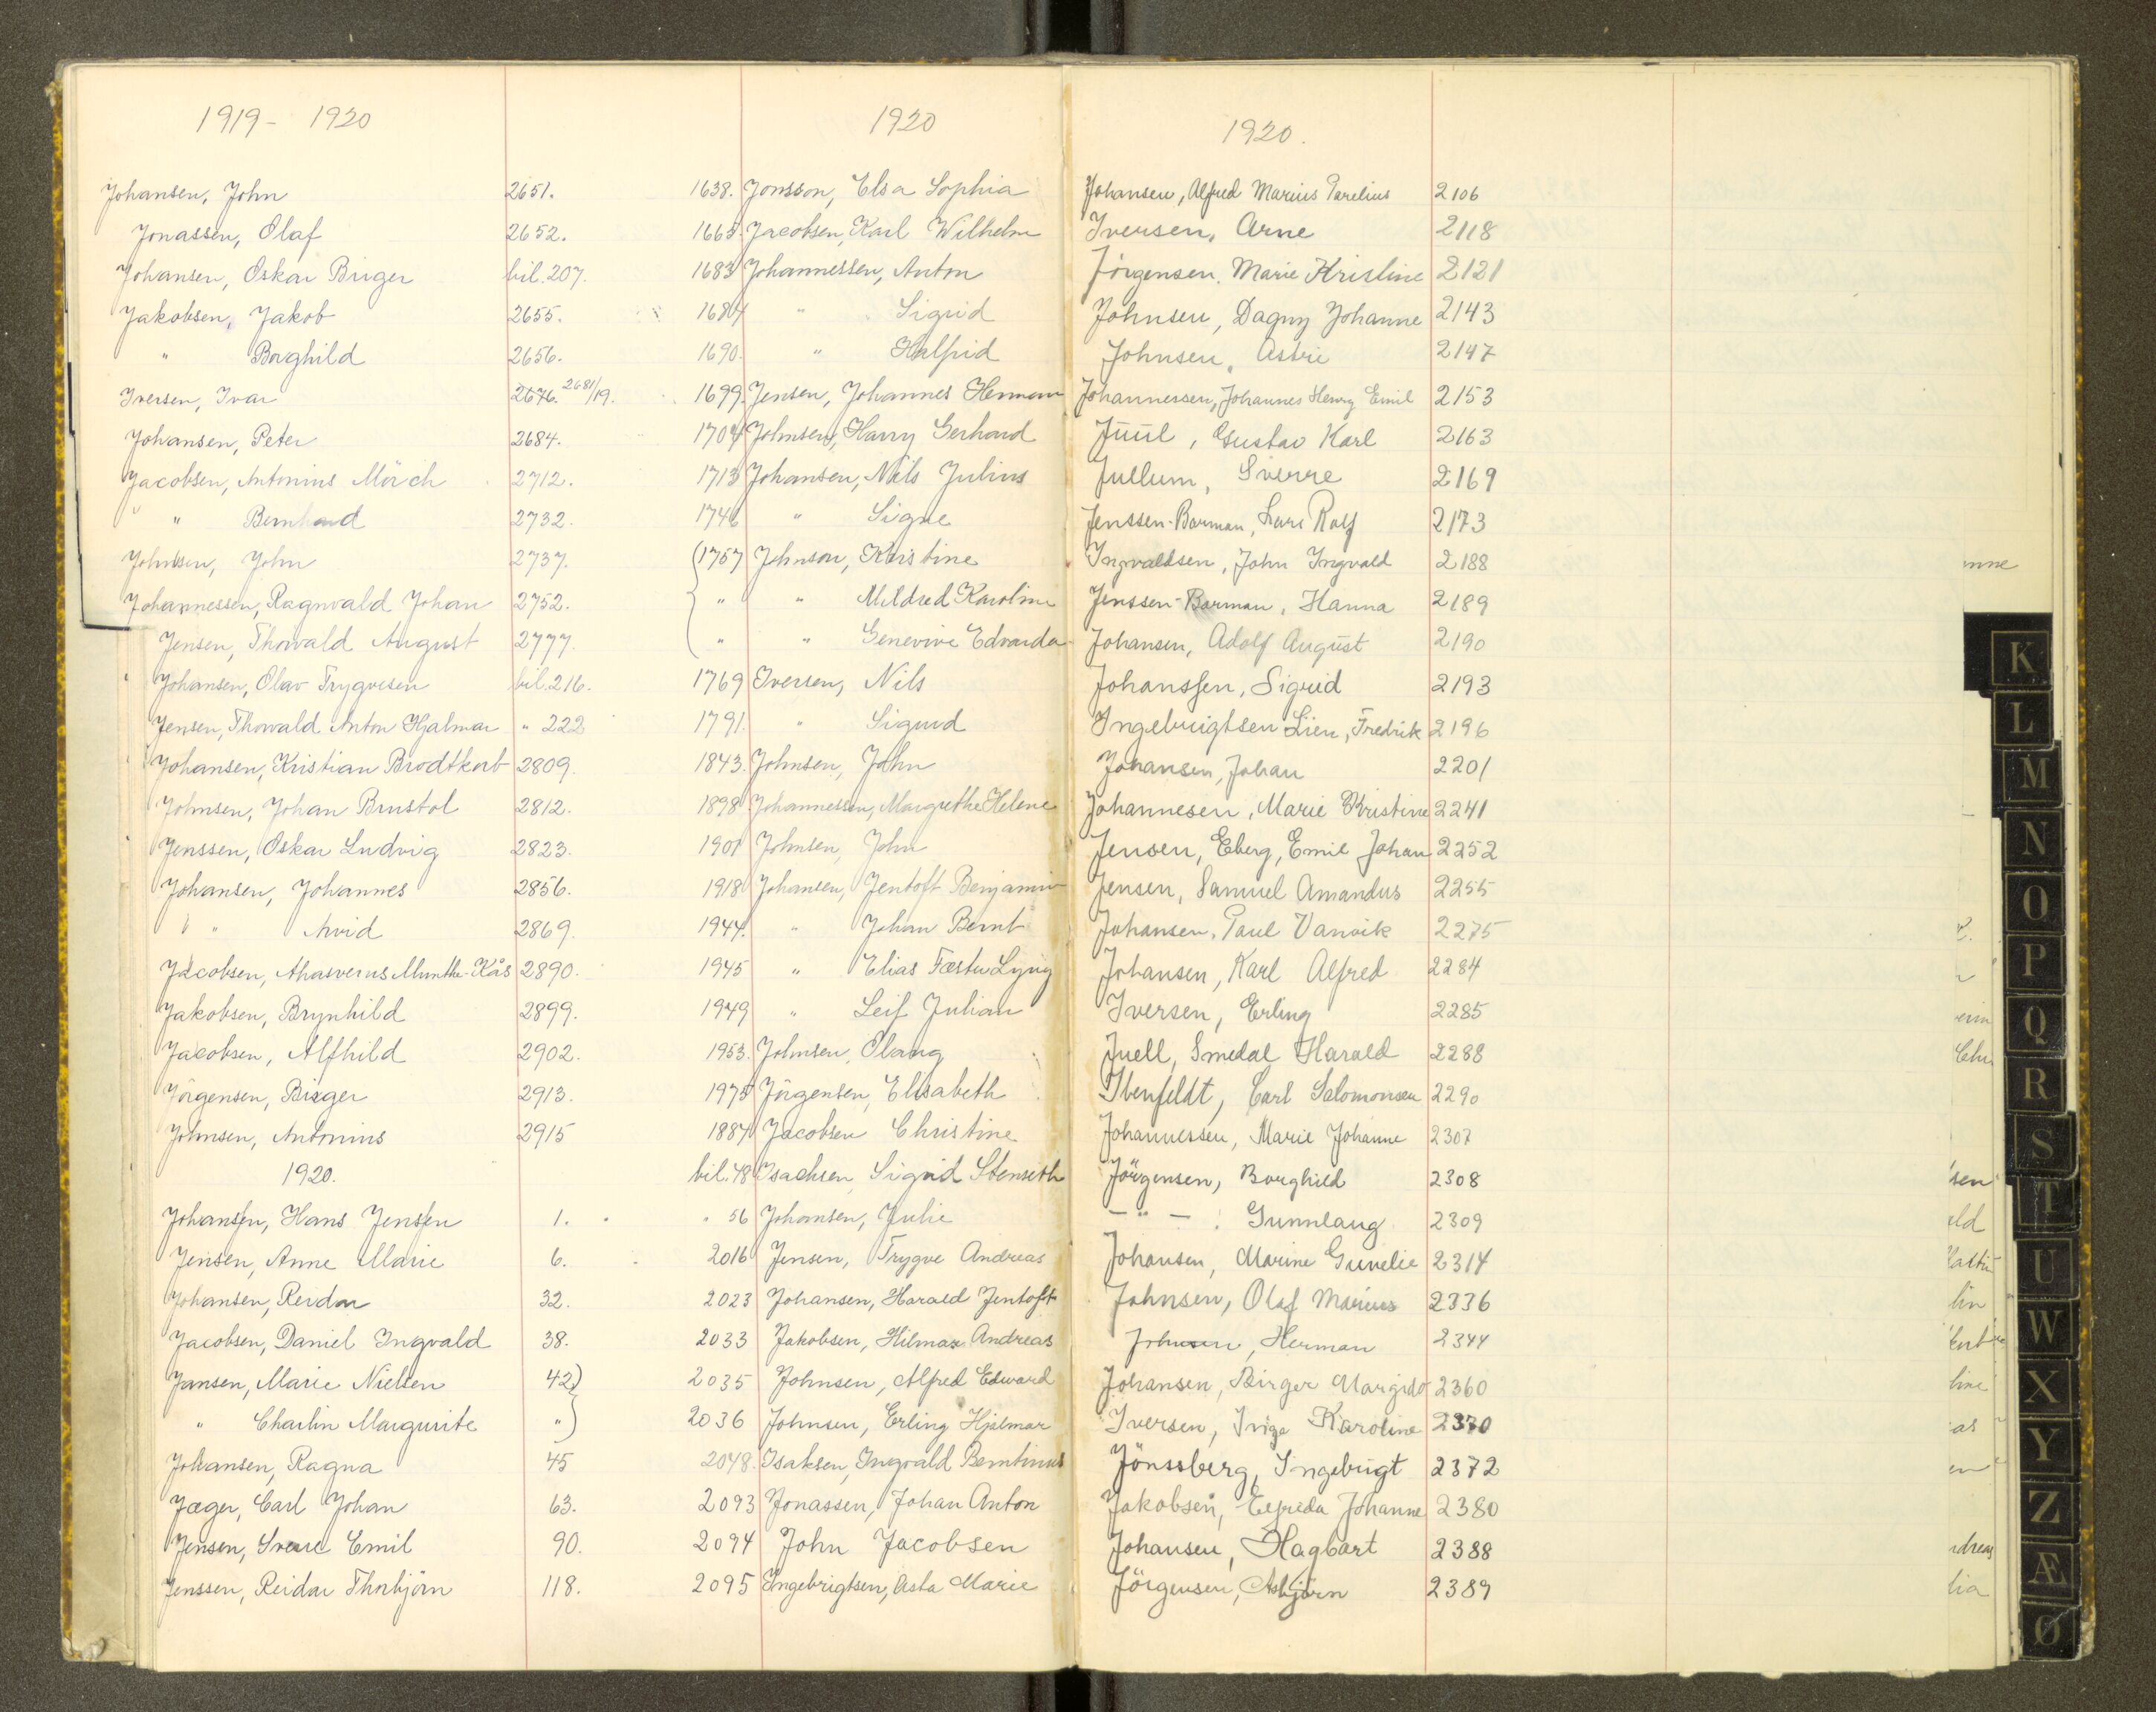 1919 - 1920
Johansen, John 2651.
Jonassen, Olaf 2652.
Johansen, Oskar Birger bil. 207.
Jakobsen, Jakob 2655.
" Borghild 2656.
Iversen, Ivar 2676. 2681/19.
Johansen, Peter 2684.
Jacobsen, Antonius Mörch 2712.
" " Bernhard 2732.
Johnsen, John 2737.
Johannessen, Ragnvald Johan 2752.
Jensen, Thorvald August 2777.
Johansen, Olav Trygvesen bil. 216.
Jensen, Thorvald Anton Hjalmar " 222
Johansen, Kristian Brodtkorb 2809.
Johnsen, Johan Brustol 2812.
Jenssen, Oskar Ludvig 2823.
Johansen, Johannes 2856.
" " Arvid 2869.
Jacobsen, Ahasverus Munthe-Kås 2890.
Jakobsen, Brynhild 2899.
Jacobsen, Alfhild 2902.
Jörgensen, Birger 2913.
Johnsen, Antonius 2915
1920.
Johansen, Hans Jensen 1.
Jensen, Anne Marie 6.
Johansen, Reidar 32.
Jacobsen, Daniel Ingvald 38.
Jansen, Marie Nielsen 42)
" Charlin Margurite "
Johansen, Ragna 45
Jæger, Carl Johan 63.
Jensen, Sverre Emil 90.
Jenssen, Reidar Thorbjörn 118.
1920
1638. Jonsson, Elsa Sophia
1665. Jacobsen, Karl Wilhelm
1683 Johannessen, Anton
1684 " Sigrid
1690. " Halfrid
1699. Jensen, Johannes Herman
1704 Johnsen, Harry Gerhard
1713 Johansen, Nils Julius
1746 " Signe
(1757 Johnson, Kristine
" " Mildred Karoline
" " Genevive Edvarda
1769 Iversen, Nils
1791. " Sigurd
1843. Johnsen, John
1898 Johannessen, Margrethe Helene
1901 Johnsen, John
1918 Johansen, Jentoft Benjamin
1944. " Johan Bernt
1945 " Elias Fæster Lyng
1949 " Leif Julian
1953. Johnsen, Olaug
1975 Jörgensen, Elisabeth
1884 Jacobsen Christine
bil. 48 Isachsen, Sigrid Stenseth
" 56 Johansen, Julie
2016 Jensen, Trygve Andreas
2023 Johansen, Harald Jentoft
2033 Jakobsen, Hilmar Andreas
2035 Johnsen, Alfred Edward
2036 Johnsen, Erling Hjelmar
2048. Isaksen, Ingvald Berntinus
2093 Jonassen, Johan Anton
2094 John Jacobsen
2095 Ingebrigtsen, Asta Marie
1920.
Johansen, Alfred Marius Parelius 2106
Iversen, Arne 2118
Jörgensen, Marie Kristine 2121
Johnsen, Dagny Johanne 2143
Johnsen, Astri 2147
Johannessen, Johannes Henry Emil 2153
Juul, Gustav Karl 2163
Jullum, Sverre 2169
Jenssen-Borman, Lars Rolf 2173
Ingvaldsen, John Ingvald 2188
Jenssen-Borman, Hanna 2189
Johansen, Adolf August 2190
Johanssen, Sigrid 2193
Ingebrigtsen Lien, Fredrik 2196
Johansen, Johan 2201
Johannesen, Marie Kristine 2241
Jensen, Eberg, Emil Johan 2252
Jensen, Samuel Amandus 2255
Johansen, Paul Vanvik 2275
Johansen, Karl Alfred 2284
Iversen, Erling 2285
Juell, Smedal Harald 2288
Ibenfeldt, Carl Salomonsen 2290
Johannessen, Marie Johanne 2307
Jörgensen, Borghild 2308
— " — : Gunnlaug 2309
Johansen, Marine Gunelie 2314
Johnsen, Olaf Marius 2336
Johnsen, Herman 2344
Johansen, Birger Margido 2360
Iversen, Inga Karoline 2370
Jönssberg, Ingebrigt 2372
Jakobsen, Elfrida Johanne 2380
Johansen, Hagbart 2388
Jörgensen, Asbjörn 2389
K
L
M
N
O
P
Q
R
S
T
U
W
X
Y
Z
Æ
Ø